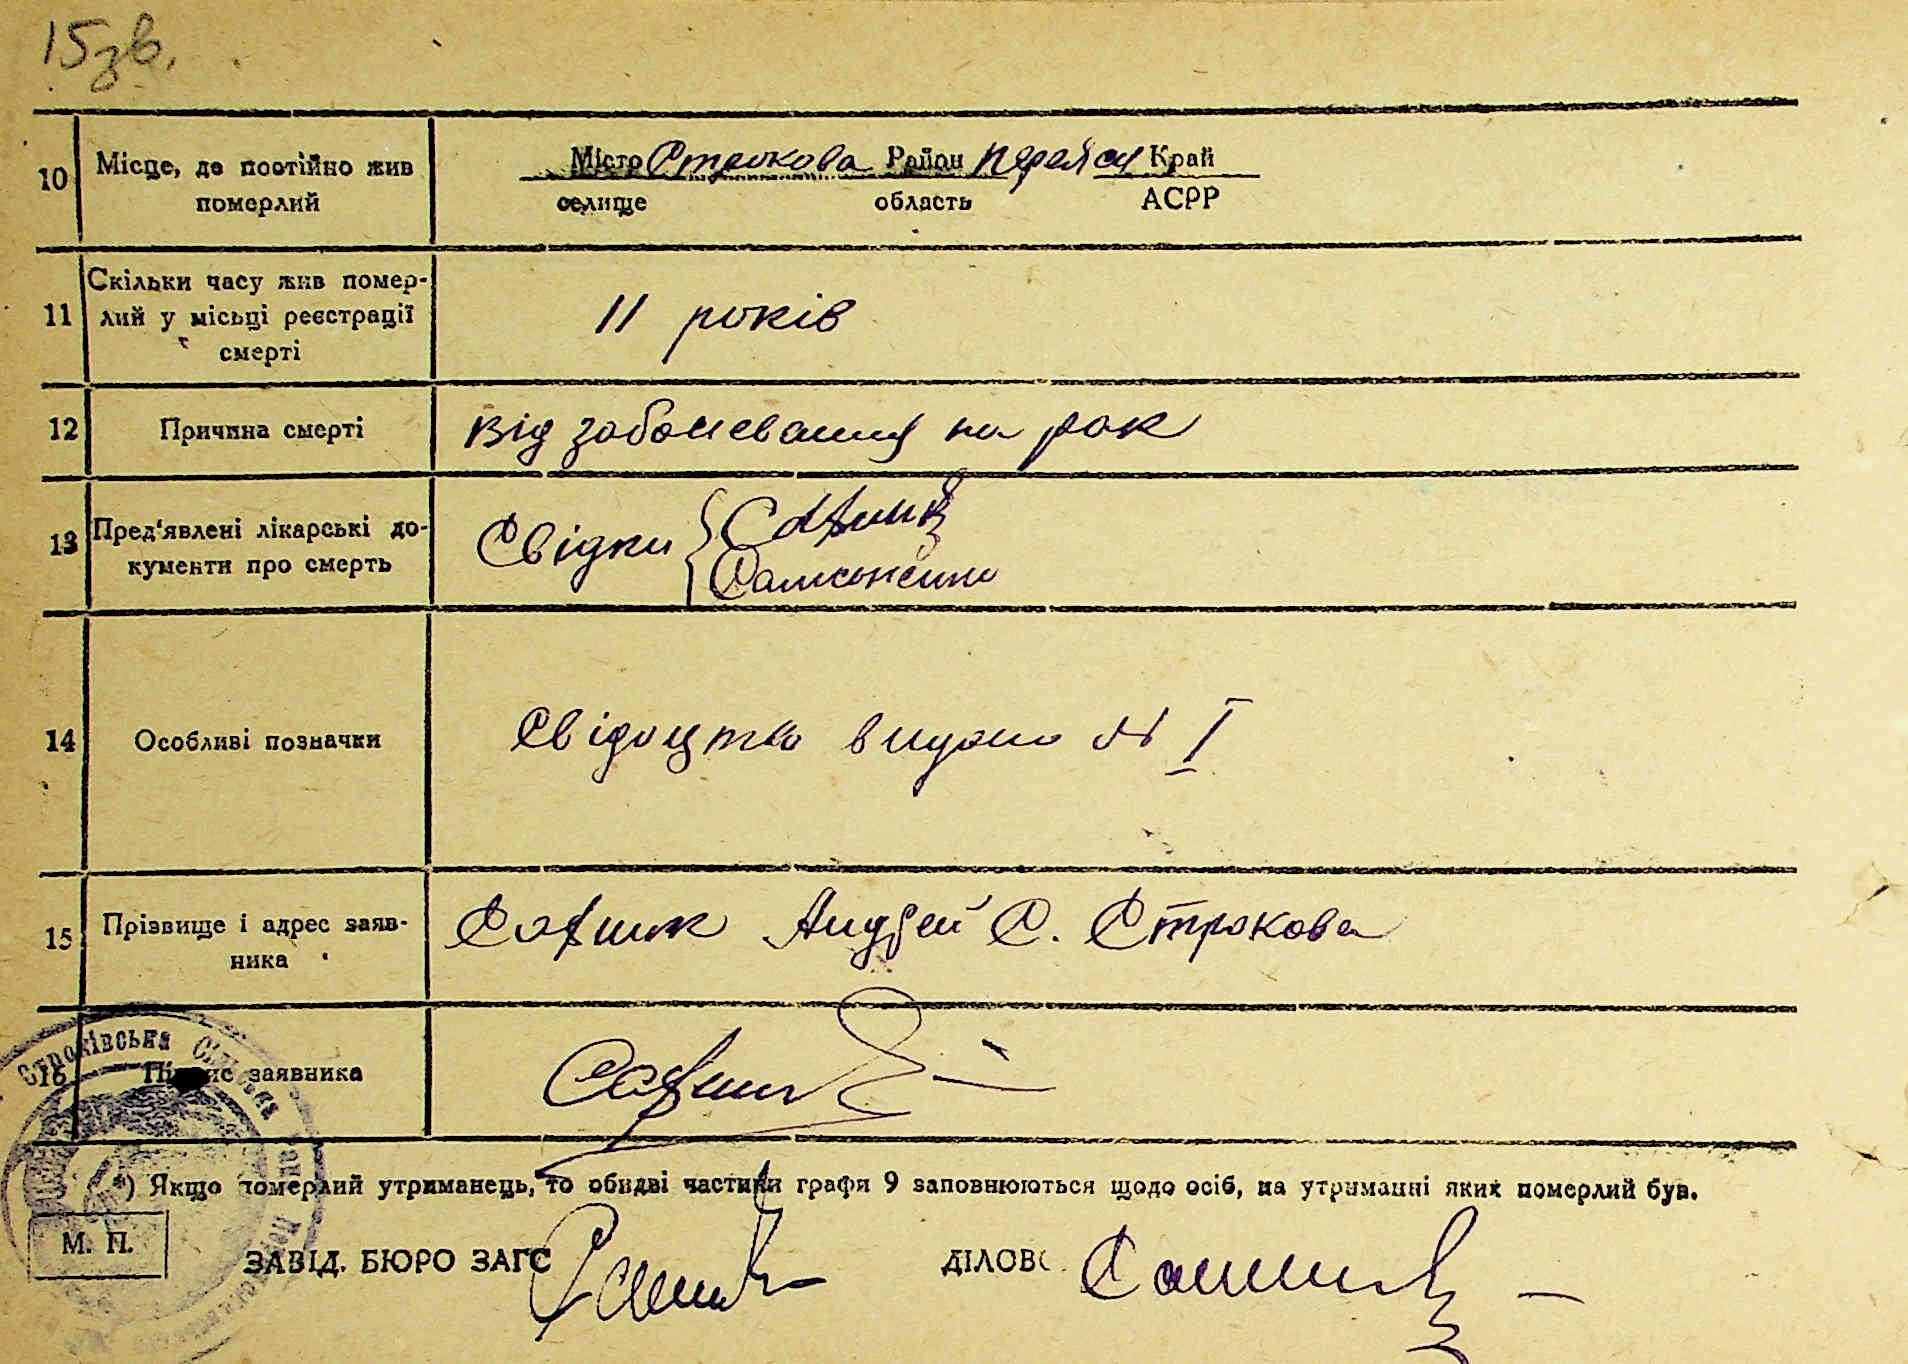 15зв.
10 Місце, де постійно жив померлий
Місто Строкова Район Переясл Край
селище область АСРР
11 Скільки часу жив помер-
лий у місьці реєстрації
смерті
11 років
12 Причина смерті
від заболевания на рак
13 Пред'явлені лікарські до-
кументи про смерть
Свідки
14 Особливі позначки
Свідоцтво видано № I
15 Прізвище і адрес заяв-
ника
Андрей С. Строкова
16 Підпис заявника
Строківська
*) Якщо померлий утриманець, то обидві частини графи 9 заповнюються щодо осіб, на утриманні яких померлий був.
М. П.
ЗАВІД. БЮРО ЗАГС
ДІЛОВ